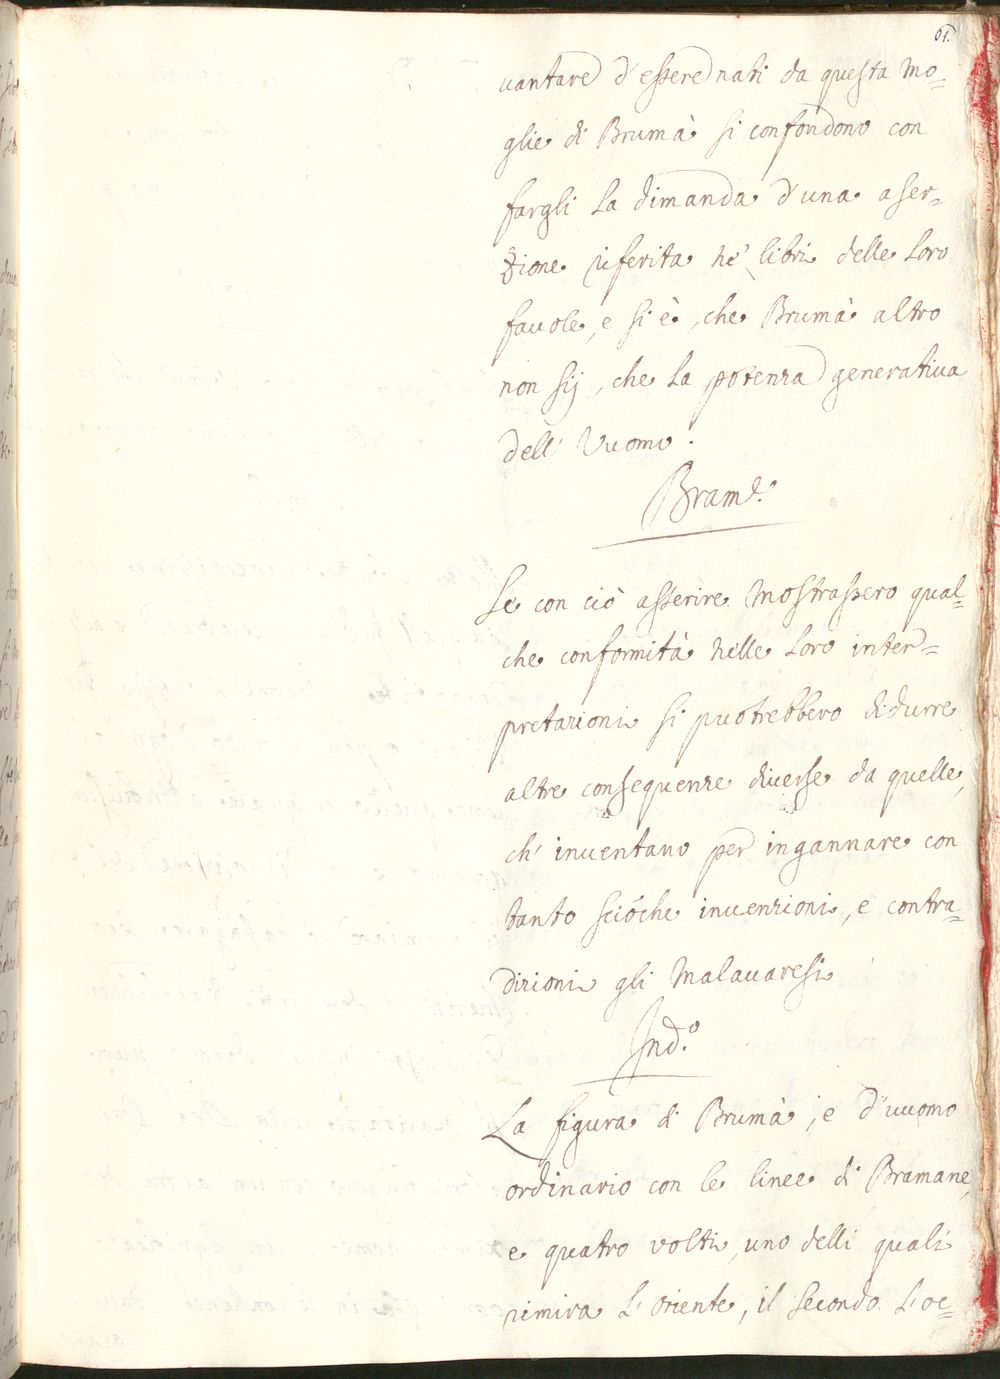 61.
vantare d'essere nati da questa mo=
glie di Brumà si confondono con
fargli la dimanda d'una aser=
zione riferita ne' libri delle loro
favole, e si è, che Brumà altro
non sij, che la potenza generativa
dell' Vuomo.
Bram.e
Se con ciò asserire mostrassero qual=
che conformità nelle loro inter=
pretazioni si puotrebbero didurre
altre consequenze diverse da quelle,
ch' inventano per ingannare con
tanto scioche invenzioni, e contra=
dizioni gli Malavaresi
Ind.o
La figura di Brumà, e d'uuomo
ordinario con le linee di Bramane,
e quatro volti, uno delli quali
rimira l'oriente, il secondo l'oc=